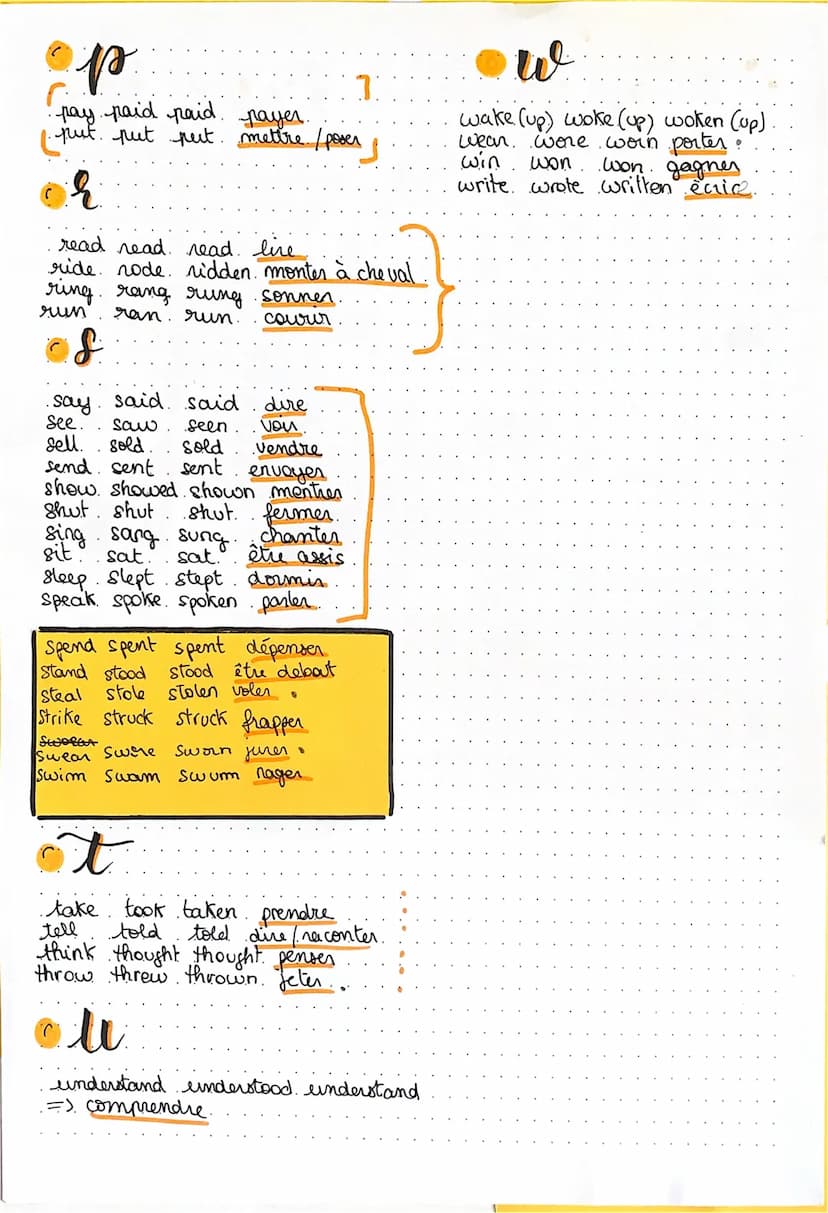 p
pay paid paid payer
put put put mettre / poser
r
read read read lire
ride rode ridden monter à cheval
ring rang rung sonner
run ran run courir
s
say said said dire
see saw seen voir
sell sold sold vendre
send sent sent envoyer
show showed shown montrer
shut shut shut fermer
sing sang sung chanter
sit sat sat être assis
sleep slept slept dormir
speak spoke spoken parler
spend spent spent dépenser
stand stood stood être debout
steal stole stolen voler
strike struck struck frapper
swear swore sworn jurer
swim swam swum nager
t
take took taken prendre
tell told told dire / raconter
think thought thought penser
throw threw thrown jeter
u
understand understood understand
=> comprendre
w
wake (up) woke (up) woken (up)
wear wore worn porter
win won won gagner
write wrote written écrire